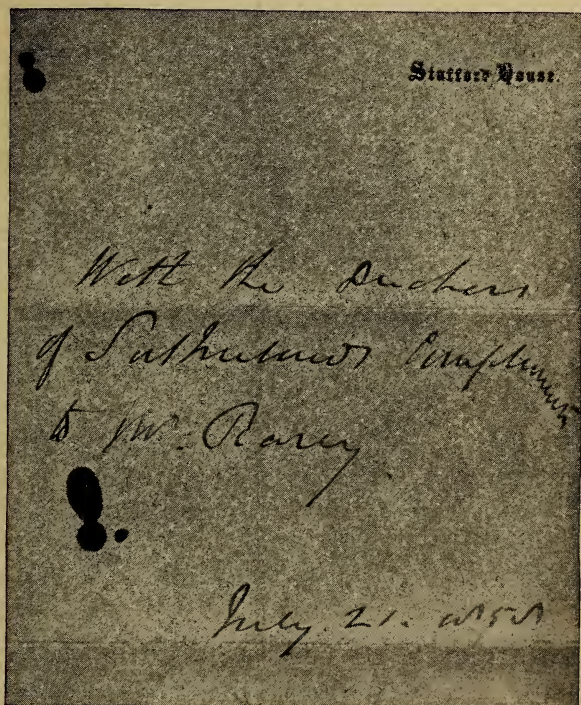 Stafford House.
With the Duchess
of Sutherland's Compliments
to Mr. Rarey
July. 21.